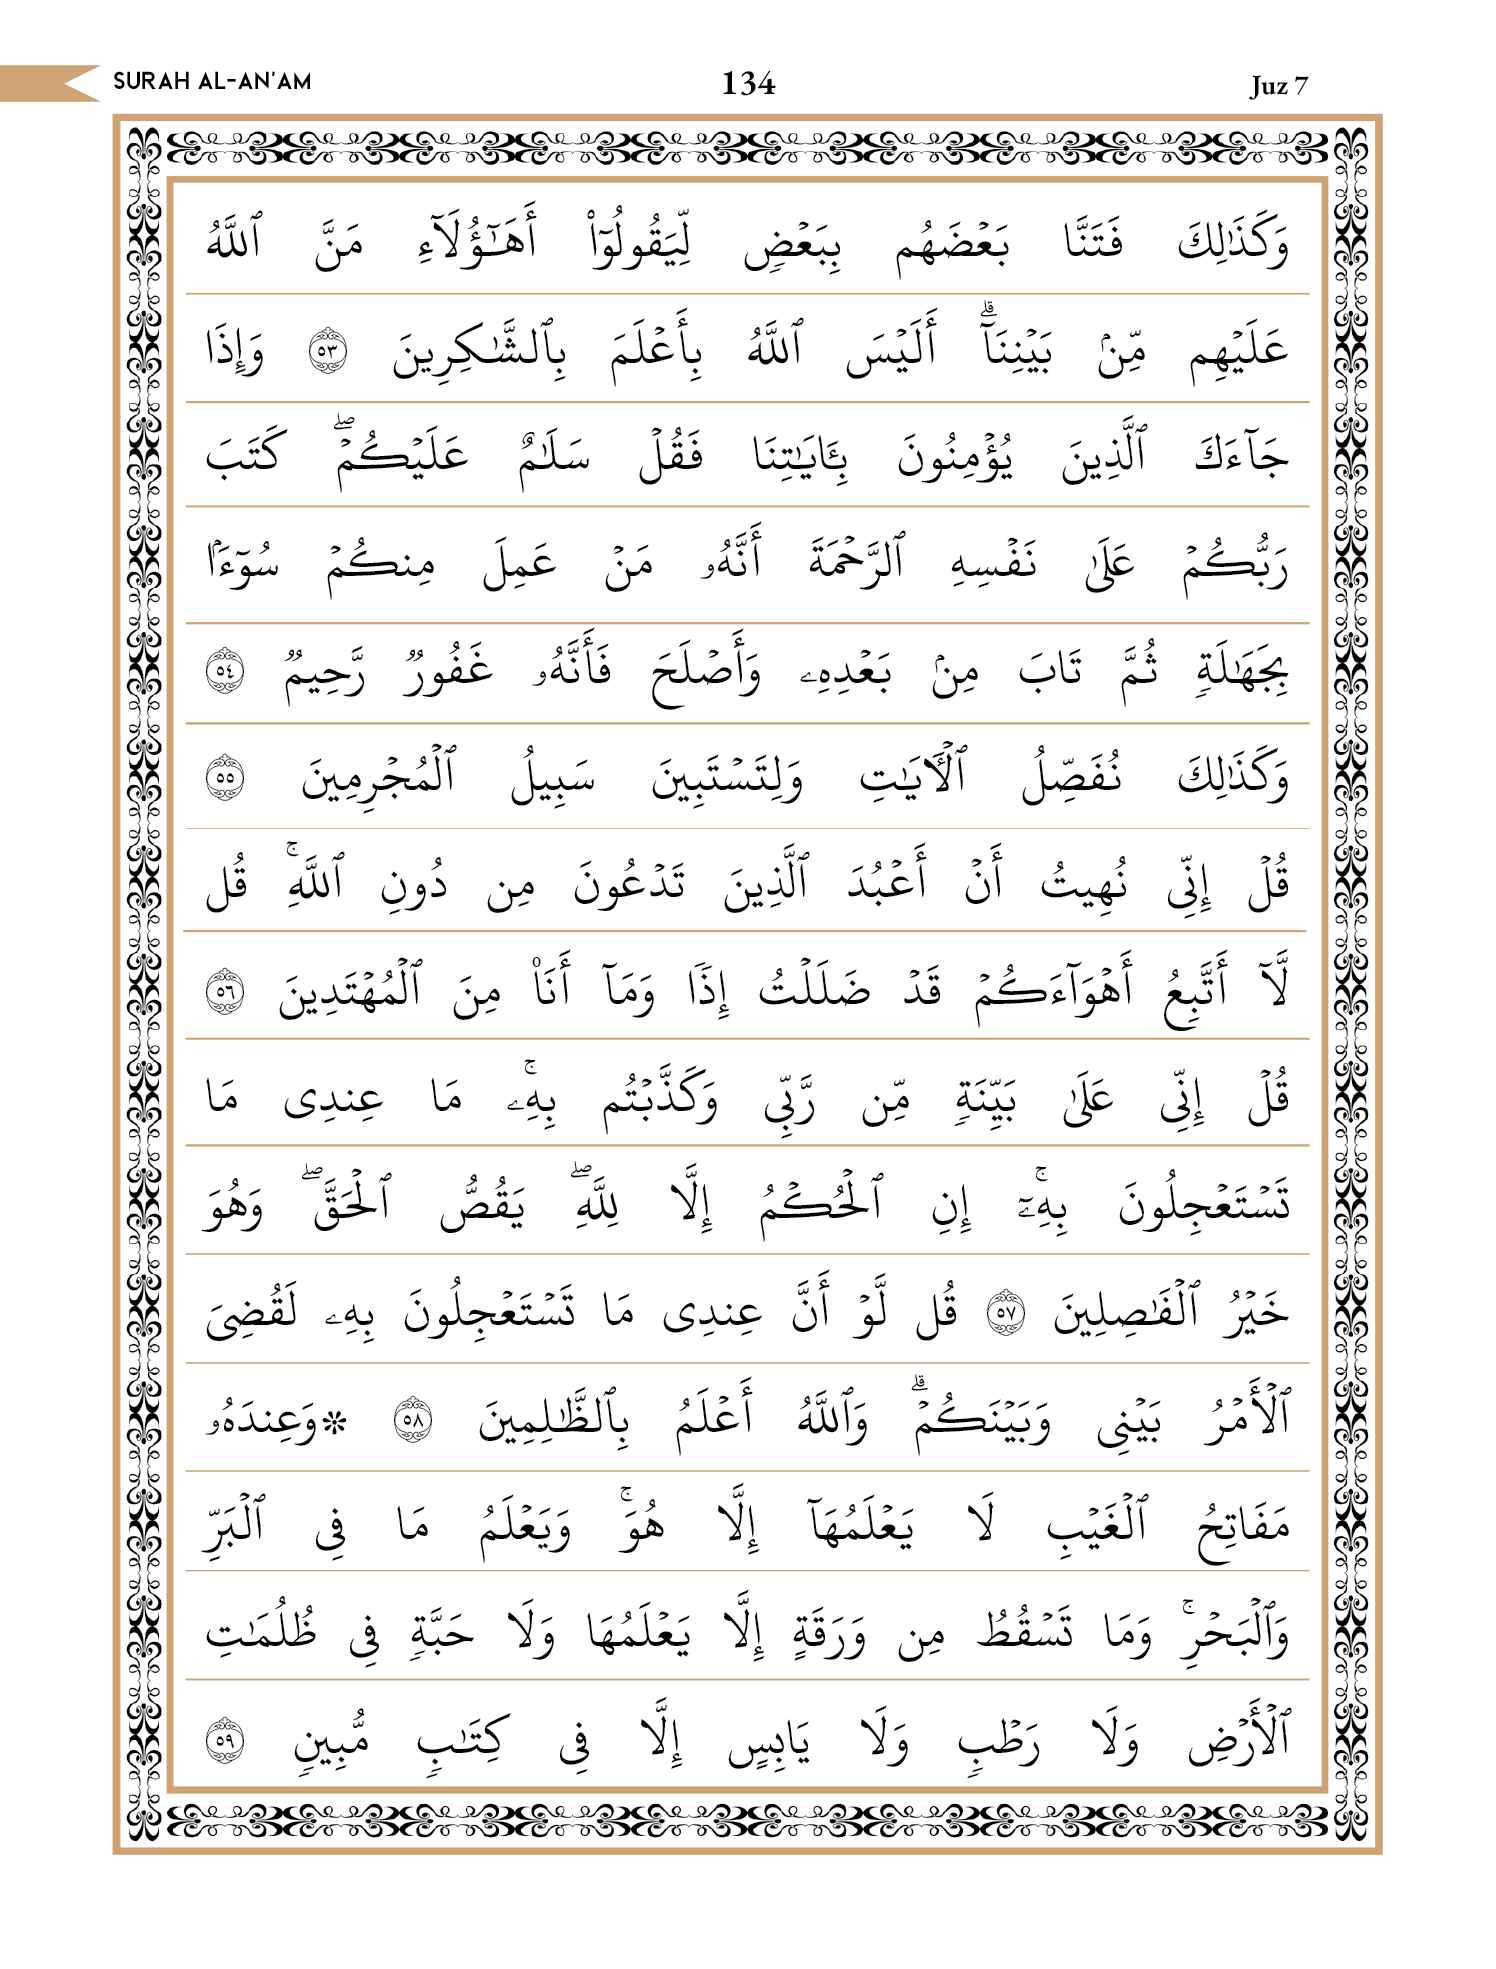 SURAH AL-AN'AM
134
Juz 7
وَكَذَٰلِكَ فَتَنَّا بَعْضَهُم بِبَعْضٍ لِّيَقُولُوٓا۟ أَهَـٰٓؤُلَآءِ مَنَّ ٱللَّهُ
عَلَيْهِم مِّنۢ بَيْنِنَآ ۗ أَلَيْسَ ٱللَّهُ بِأَعْلَمَ بِٱلشَّـٰكِرِينَ ٥٣ وَإِذَا
جَآءَكَ ٱلَّذِينَ يُؤْمِنُونَ بِـَٔايَـٰتِنَا فَقُلْ سَلَـٰمٌ عَلَيْكُمْ ۖ كَتَبَ
رَبُّكُمْ عَلَىٰ نَفْسِهِ ٱلرَّحْمَةَ أَنَّهُۥ مَنْ عَمِلَ مِنكُمْ سُوٓءًۢا
بِجَهَـٰلَةٍ ثُمَّ تَابَ مِنۢ بَعْدِهِۦ وَأَصْلَحَ فَأَنَّهُۥ غَفُورٌ رَّحِيمٌ ٥٤
وَكَذَٰلِكَ نُفَصِّلُ ٱلْـَٔايَـٰتِ وَلِتَسْتَبِينَ سَبِيلُ ٱلْمُجْرِمِينَ ٥٥
قُلْ إِنِّى نُهِيتُ أَنْ أَعْبُدَ ٱلَّذِينَ تَدْعُونَ مِن دُونِ ٱللَّهِ ۚ قُل
لَّآ أَتَّبِعُ أَهْوَآءَكُمْ قَدْ ضَلَلْتُ إِذًا وَمَآ أَنَا۠ مِنَ ٱلْمُهْتَدِينَ ٥٦
قُلْ إِنِّى عَلَىٰ بَيِّنَةٍ مِّن رَّبِّى وَكَذَّبْتُم بِهِۦ ۚ مَا عِندِى مَا
تَسْتَعْجِلُونَ بِهِۦٓ ۚ إِنِ ٱلْحُكْمُ إِلَّا لِلَّهِ ۖ يَقُصُّ ٱلْحَقَّ ۖ وَهُوَ
خَيْرُ ٱلْفَـٰصِلِينَ ٥٧ قُل لَّوْ أَنَّ عِندِى مَا تَسْتَعْجِلُونَ بِهِۦ لَقُضِىَ
ٱلْأَمْرُ بَيْنِى وَبَيْنَكُمْ ۗ وَٱللَّهُ أَعْلَمُ بِٱلظَّـٰلِمِينَ ٥٨ * وَعِندَهُۥ
مَفَاتِحُ ٱلْغَيْبِ لَا يَعْلَمُهَآ إِلَّا هُوَ ۚ وَيَعْلَمُ مَا فِى ٱلْبَرِّ
وَٱلْبَحْرِ ۚ وَمَا تَسْقُطُ مِن وَرَقَةٍ إِلَّا يَعْلَمُهَا وَلَا حَبَّةٍ فِى ظُلُمَـٰتِ
ٱلْأَرْضِ وَلَا رَطْبٍ وَلَا يَابِسٍ إِلَّا فِى كِتَـٰبٍ مُّبِينٍ ٥٩